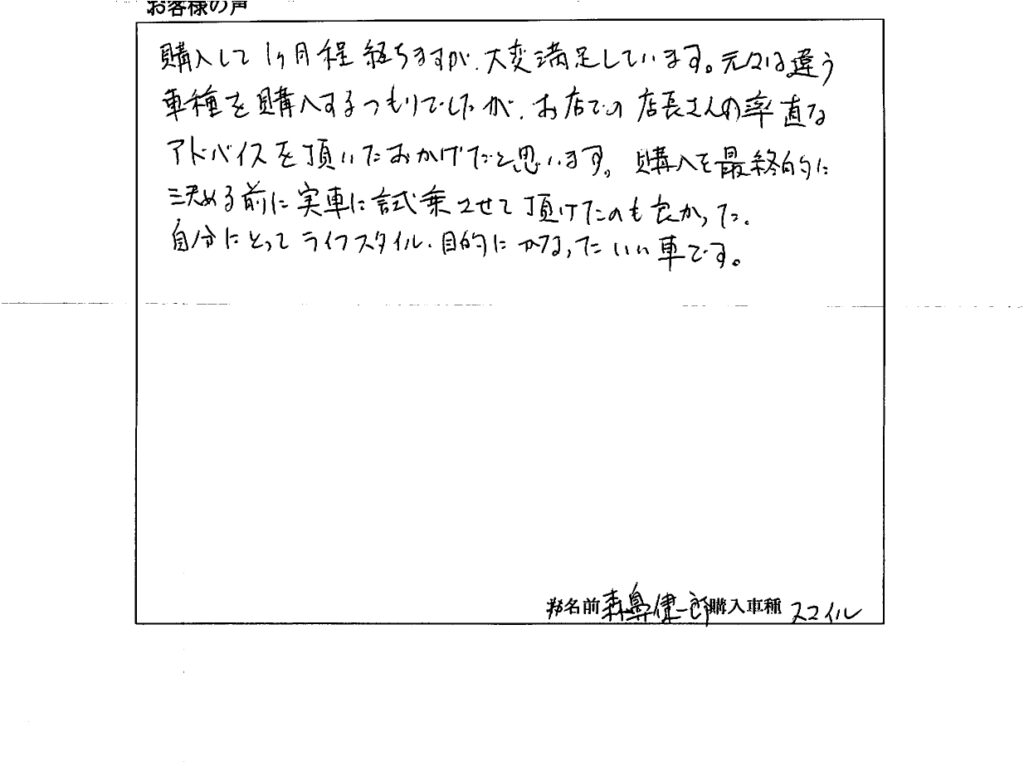 お客様の声
購入して1ヶ月程経ちますが、大変満足しています。元々は違う
車種を購入するつもりでしたが、お店での店長さんの率直な
アドバイスを頂いたおかげだと思います。購入を最終的に
決める前に実車に試乗させて頂けたのも良かった。
自分にとってライフスタイル、目的にかなったいい車です。
お名前 森鼻健一郎 購入車種 スマイル